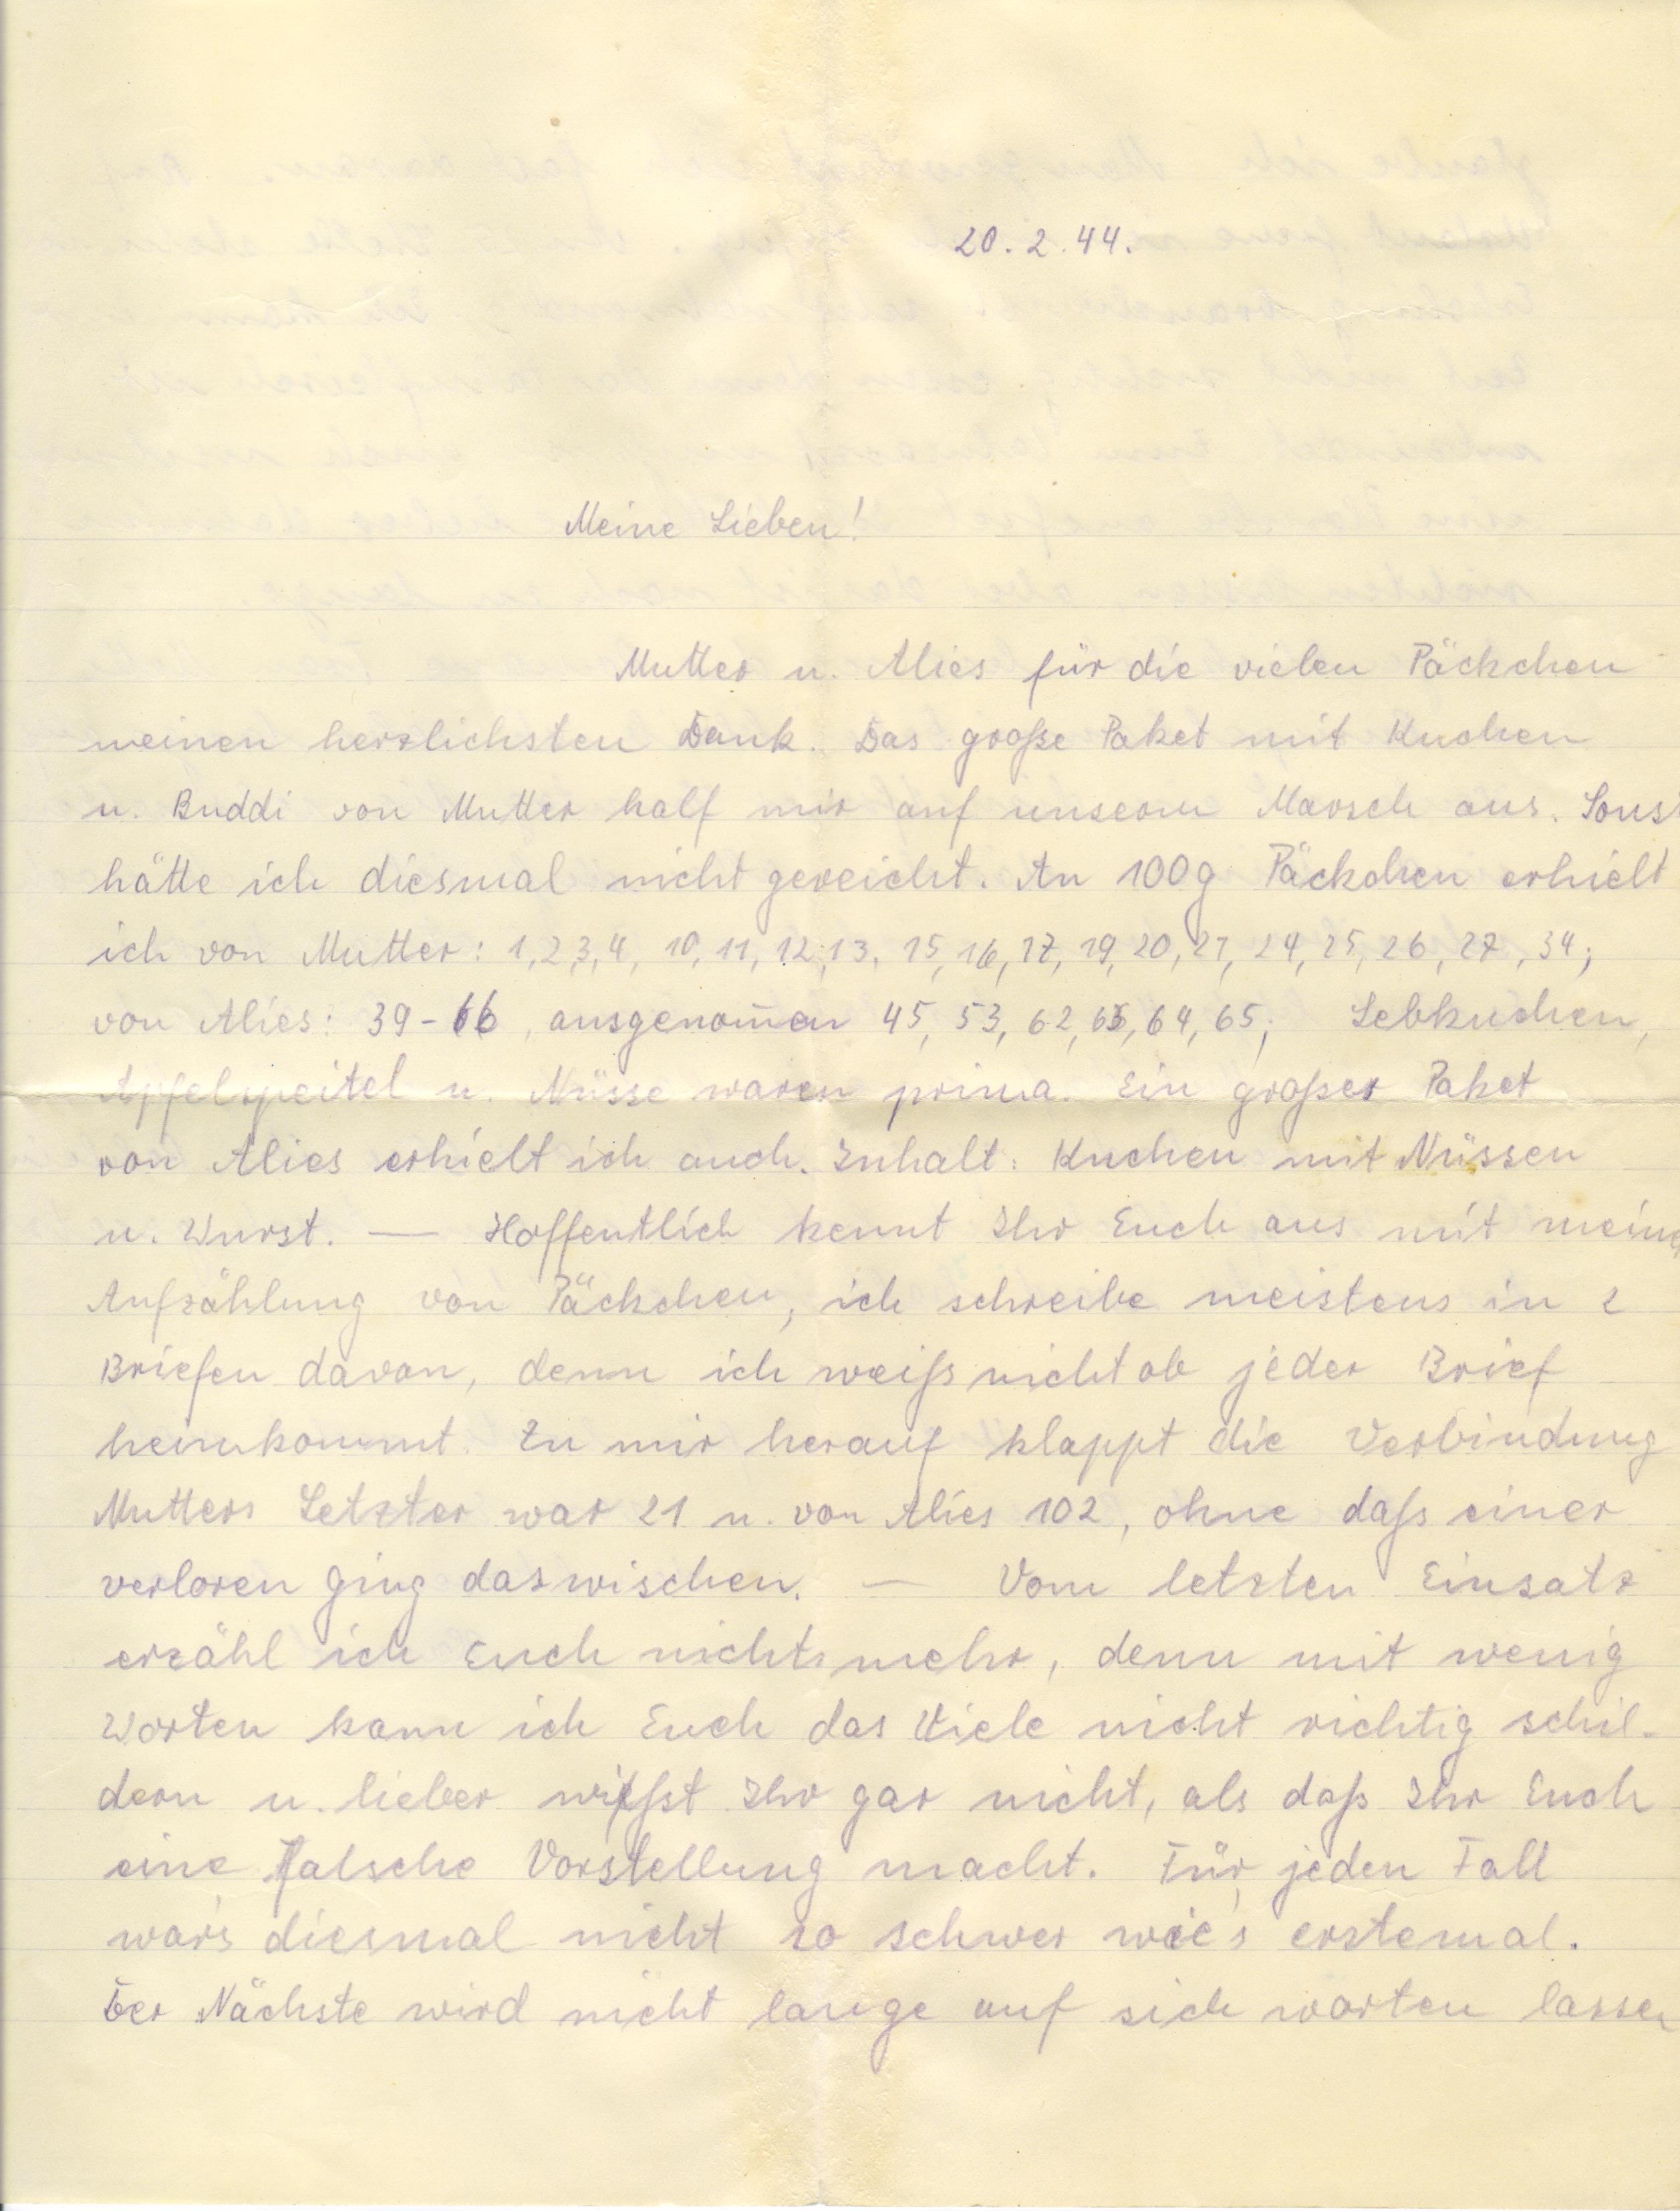 20.2.44.
Meine Lieben!
Mutter u. Alies für die vielen Päckchen
meinen herzlichsten Dank. Das große Paket mit Kuchen
u. Buddi von Mutter half mir auf unserm Marsch aus. Sonst
hätte ich diesmal nicht gereicht. An 100g Päckchen erhielt
ich von Mutter: 1,2,3,4, 10, 11, 12, 13, 15, 16, 17, 19, 20, 21, 24, 25, 26, 27, 34;
von Alies: 39-66, ausgenom̄en 45, 53, 62, 63, 64, 65; Lebkuchen,
Apfelspeitel u. Nüsse waren prima. Ein großes Paket
von Alies erhielt ich auch. Inhalt: Kuchen mit Nüssen
u. Wurst. — Hoffentlich kennt Ihr Euch aus mit meiner
Aufzählung von Päckchen, ich schreibe meistens in 2
Briefen davon, denn ich weiß nicht ob jeder Brief
heimkommt. Zu mir herauf klappt die Verbindung
Mutters Letzter war 21 u. von Alies 102, ohne daß einer
verloren ging dazwischen. — Vom letzten Einsatz
erzähl ich Euch nichts mehr, denn mit wenig
Worten kann ich Euch das Viele nicht richtig schil-
dern u. lieber wißt Ihr gar nicht, als daß Ihr Euch
eine falsche Vorstellung macht. Für jeden Fall
war's diesmal nicht so schwer wie's erstemal.
Der Nächste wird nicht lange auf sich warten lassen